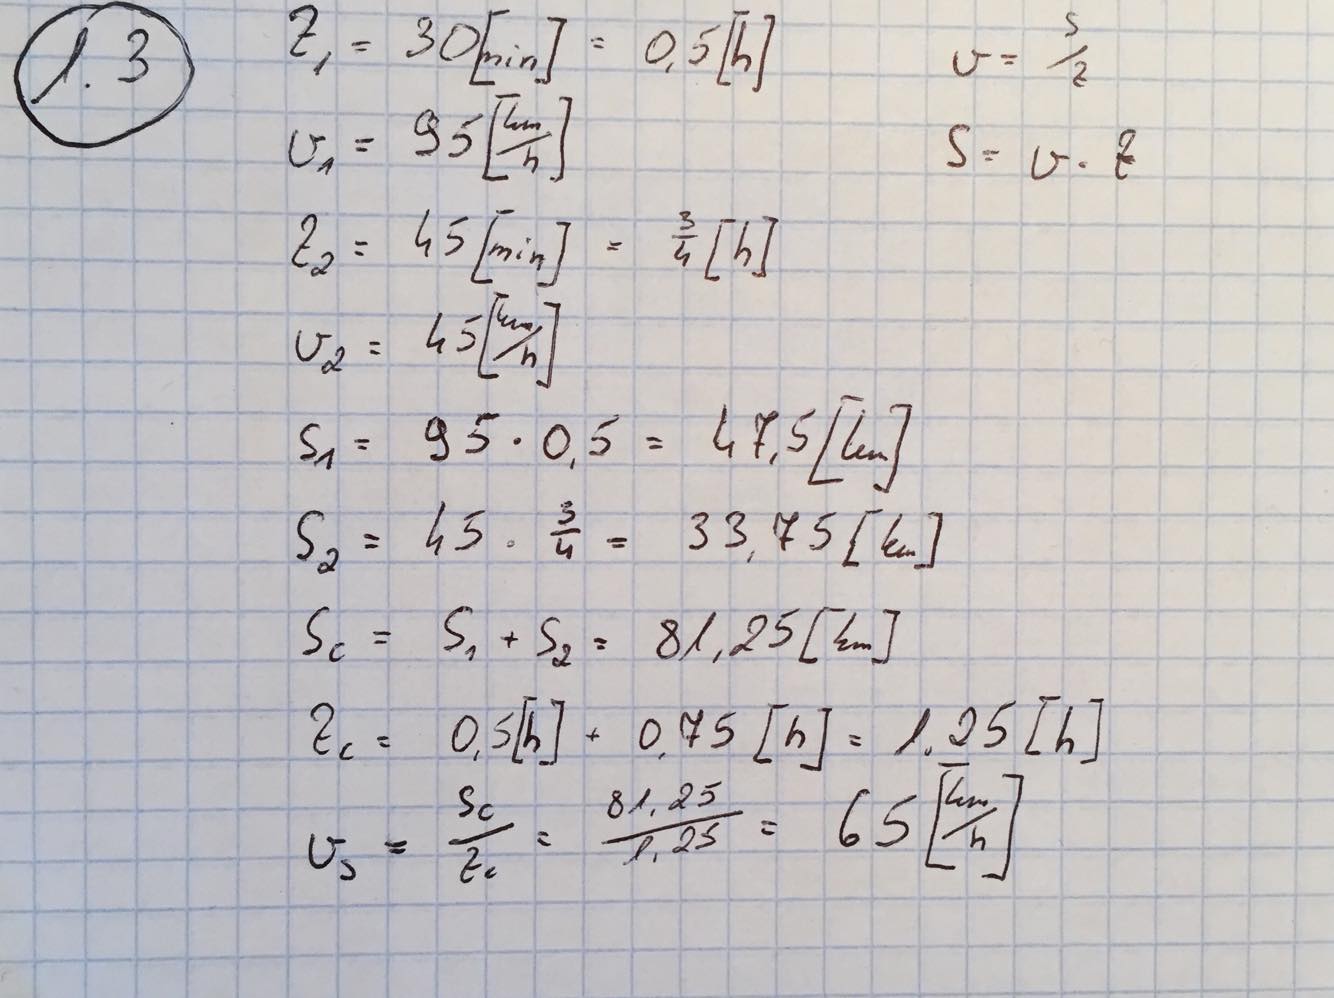 1.3
Z₁ = 30 [min] = 0,5 [h]
v = s/z
v₁ = 95 [km/h]
S = v · Z
Z₂ = 45 [min] = 3/4 [h]
v₂ = 45 [km/h]
S₁ = 95 · 0,5 = 47,5 [km]
S₂ = 45 · 3/4 = 33,75 [km]
Sc = S₁ + S₂ = 81,25 [km]
Zc = 0,5 [h] + 0,75 [h] = 1,25 [h]
vs = Sc/Zc = 81,25/1,25 = 65 [km/h]